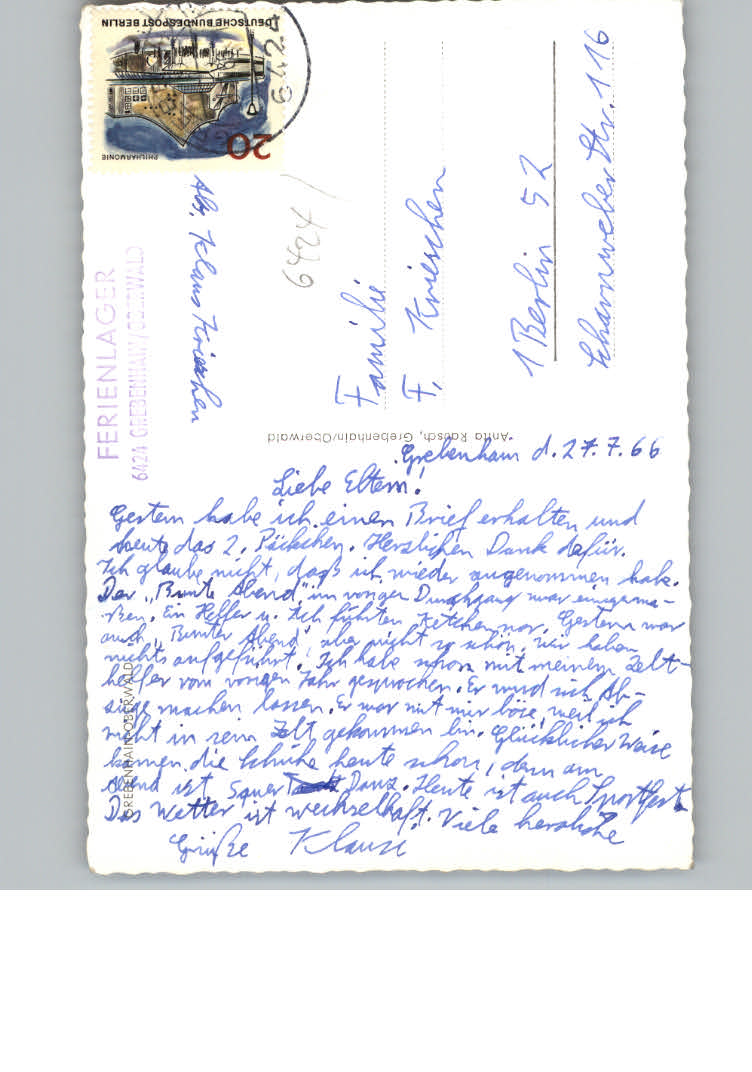 DEUTSCHE BUNDESPOST BERLIN
20
PHILHARMONIE
6424
FERIENLAGER
6424 GREBENHAIN/OBERWALD
Abs. Klaus Krieschen
6424
Familie
F. Krieschen
1 Berlin 52
Scharnweber Str. 116
Anita Rausch, Grebenhain/Oberwald
GREBENHAIN-OBERWALD
Grebenhain d. 27.7.66
Liebe Eltern!
Gestern habe ich einen Brief erhalten und
heute das 2. Päckchen. Herzlichen Dank dafür.
Ich glaube nicht, daß ich wieder angenommen habe.
Der „Bunte Abend" im vorigen Durchgang war einigerma-
ßen. Ein Helfer u. ich führten vor. Gestern war
auch „Bunter Abend", aber nicht so schön, wir haben
nichts aufgeführt. Ich habe schon mit meinem Zelt-
helfer vom vorigen Jahr gesprochen. Er wird sich Ab-
züge machen lassen. Er war mit mir böse, weil ich
nicht in sein Zelt gekommen bin. Glücklicher Weise
kamen die Schuhe heute schon, denn am
Abend ist Danz. Heute ist auch Sportfest.
Das Wetter ist wechselhaft. Viele herzliche
Grüße Klausi